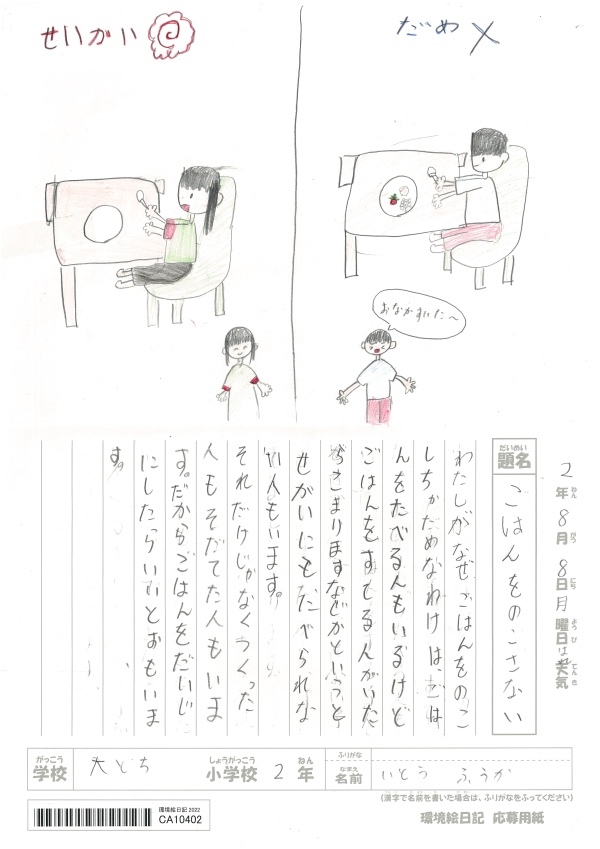 せいかい
だめ ×
おなかすいた〜
2年 8月 8日 月曜日 天気 はれ
ねん がつ にち ようび てんき
だいめい
題名
ごはんをのこさない
わたしがなぜごはんをのこ
しちゃだめなわけは、ごは
んをたべる人もいるけど
ごはんをすてる人がいた
らこまりますなぜかというと
せがいにもたべられな
い人もいます。
それだけじゃなくつくった
人もそだてた人もいま
す。だからごはんをだいじ
にしたらいいとおもいま
す。
がっこう しょうがっこう ねん ふりがな
学校 大とち 小学校 2年 なまえ 名前 いとう ふうか
(漢字で名前を書いた場合は、ふりがなをふってください)
環境絵日記 2022
CA10402
環境絵日記 応募用紙